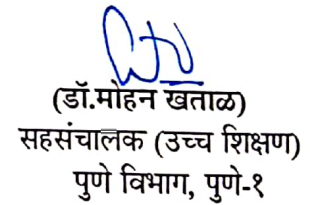 (डॉ.मोहन खताळ)
सहसंचालक (उच्च शिक्षण)
पुणे विभाग, पुणे-१